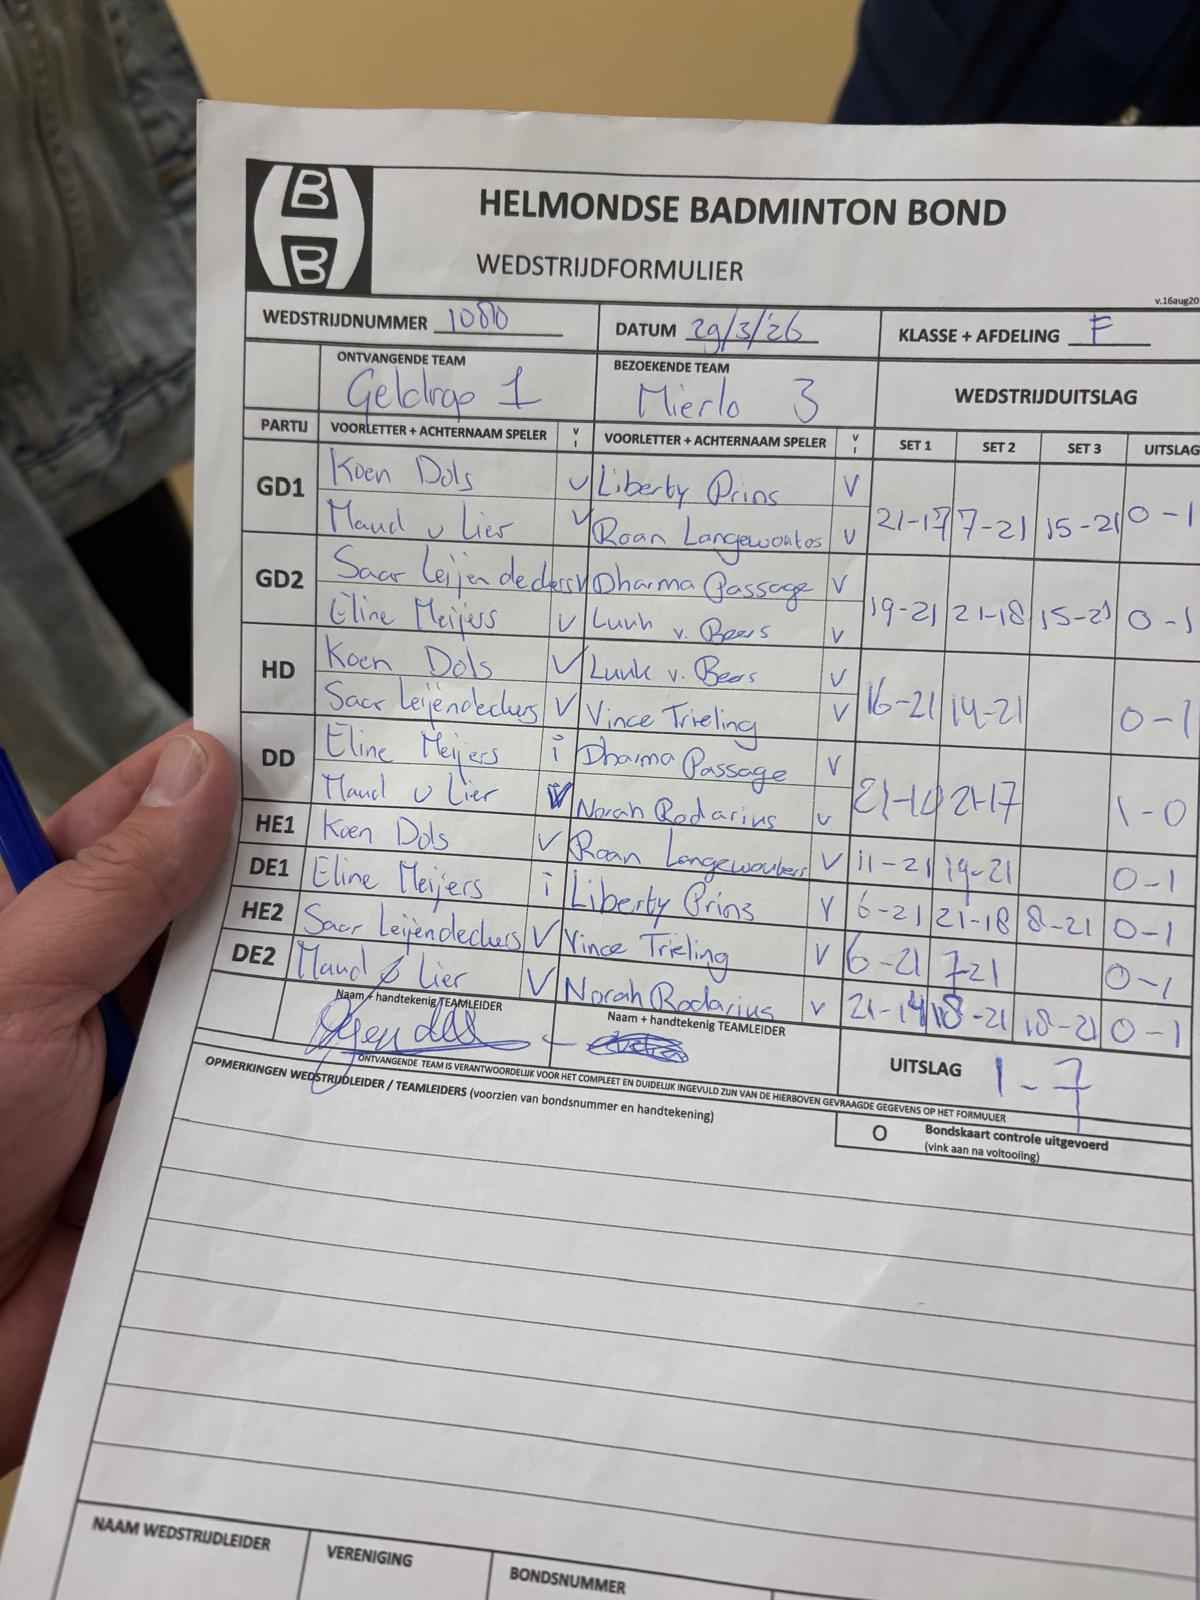 B
B
HELMONDSE BADMINTON BOND
WEDSTRIJDFORMULIER
v.16aug20
WEDSTRIJDNUMMER 1080 DATUM 29/3/'26 KLASSE + AFDELING F
ONTVANGENDE TEAM BEZOEKENDE TEAM WEDSTRIJDUITSLAG
Geldrop 1 Mierlo 3
PARTIJ VOORLETTER + ACHTERNAAM SPELER V I VOORLETTER + ACHTERNAAM SPELER V I SET 1 SET 2 SET 3 UITSLAG
GD1 Koen Dols V Liberty Prins V
Maud v Lier V Roan Langewouters V 21-17 7-21 15-21 0-1
GD2 Saar Leijendeckers V Dharma Passage V
Eline Meijers V Luuk v. Beers V 19-21 21-18 15-21 0-1
HD Koen Dols V Luuk v. Beers V
Saar Leijendeckers V Vince Trieling V 16-21 14-21 0-1
DD Eline Meijers i Dharma Passage V
Maud v Lier V Norah Rodarius V 21-10 21-17 1-0
HE1 Koen Dols V Roan Langewouters V 11-21 19-21 0-1
DE1 Eline Meijers i Liberty Prins V 6-21 21-18 8-21 0-1
HE2 Saar Leijendeckers V Vince Trieling V 6-21 7-21 0-1
DE2 Maud v Lier V Norah Rodarius V 21-14 18-21 18-21 0-1
Naam + handtekenig TEAMLEIDER Naam + handtekenig TEAMLEIDER UITSLAG 1-7
ONTVANGENDE TEAM IS VERANTWOORDELIJK VOOR HET COMPLEET EN DUIDELIJK INGEVULD ZIJN VAN DE HIERBOVEN GEVRAAGDE GEGEVENS OP HET FORMULIER
OPMERKINGEN WEDSTRIJDLEIDER / TEAMLEIDERS (voorzien van bondsnummer en handtekening)
O Bondskaart controle uitgevoerd
(vink aan na voltooiing)
NAAM WEDSTRIJDLEIDER VERENIGING BONDSNUMMER